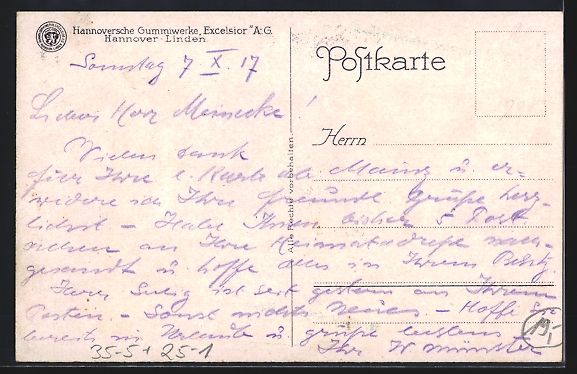 Hannoversche Gummiwerke „Excelsior" A.G.
Hannover-Linden.
Postkarte
Herrn
Alle Rechte vorbehalten.
Sonntag 7 X. 17
Lieber Herr Meinecke!
Vielen Dank
für Ihre l. Karte aus Mainz u. er-
widere ich Ihre freundl Grüße herz-
lichst – Habe Ihnen bisher 5 Post
sachen an Ihre Heimatadresse nach-
gesandt u. hoffe alles in Ihrem Besitz
Herr ist seit gestern an Ihrem
Posten. – Sonst nichts Neues – Hoffe Sie
bereits im Urlaub u grüße bestens
Ihr W Münster
19,-
35-5+ 25-1